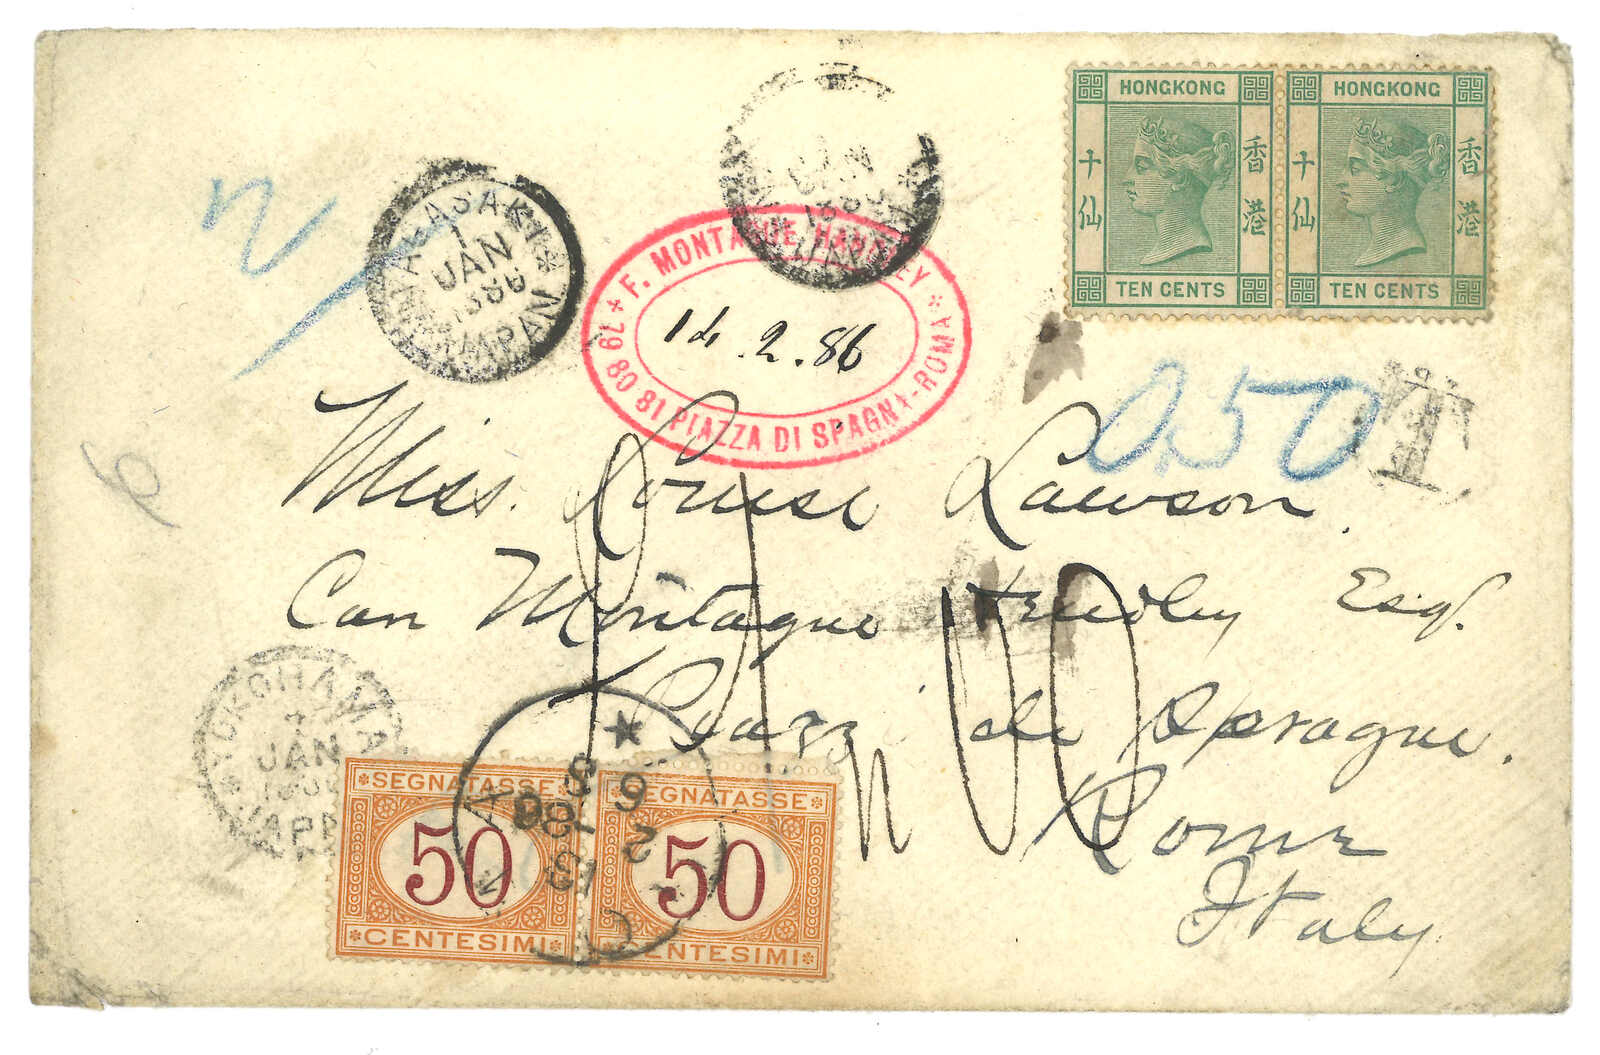 HONGKONG
十仙
香港
TEN CENTS
HONGKONG
十仙
香港
TEN CENTS
NAGASAKI
1
JAN
1886
JAPAN
JAN
F. MONTAGUE HANDLEY
14.2.86
79 80 81 PIAZZA DI SPAGNA-ROMA
n
0.50
T
Miss. Louise Lawson
Can Montague Hendley Esq.
Piazzi de Spragne.
Rome
Italy
YOKOHAMA
JAN
SEGNATASSE
50
CENTESIMI
SEGNATASSE
50
CENTESIMI
13
2
86